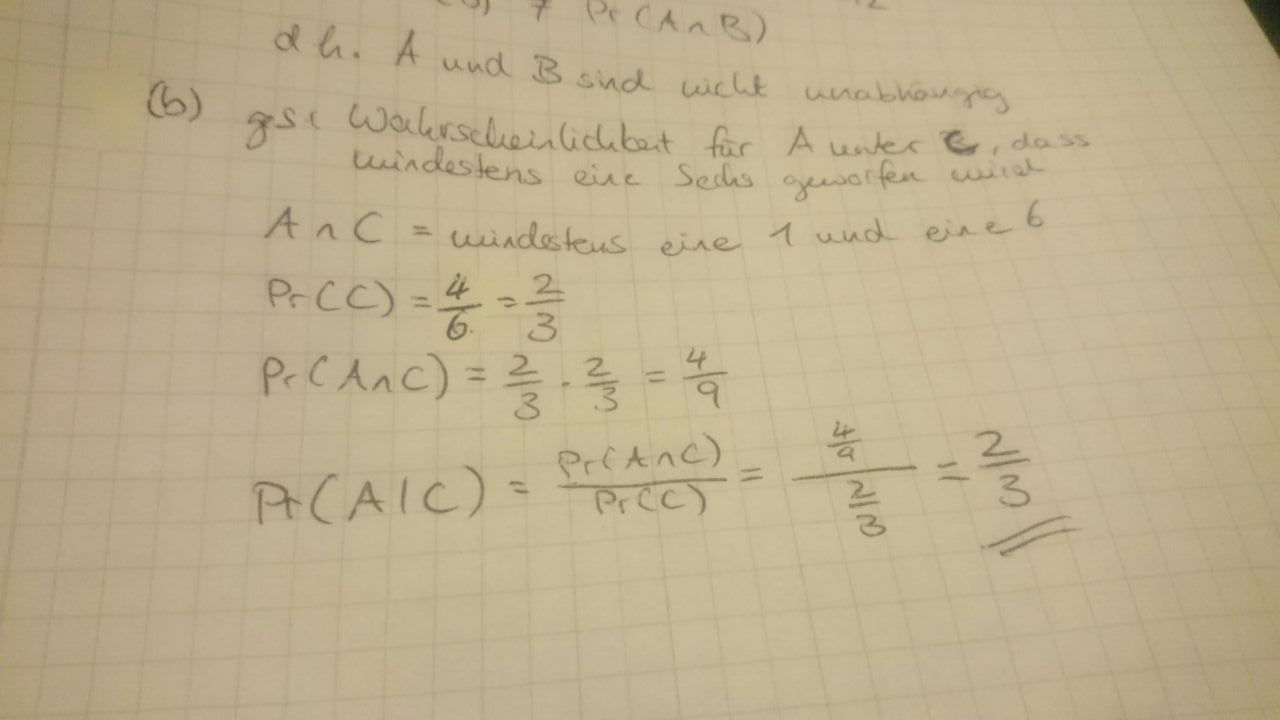 ≠ Pr(A∩B)
d h. A und B sind nicht unabhängig
(b) ges: Wahrscheinlichkeit für A unter C, dass
mindestens eine Sechs geworfen wird
A ∩ C = mindestens eine 1 und eine 6
Pr(C) = 4/6 = 2/3
Pr(A∩C) = 2/3 · 2/3 = 4/9
Pr(A|C) = Pr(A∩C)/Pr(C) = (4/9)/(2/3) = 2/3